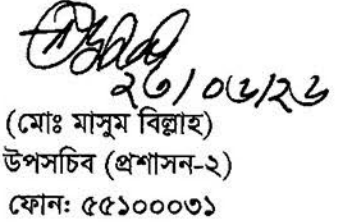 ২৩/০৬/২৬
(মোঃ মাসুম বিল্লাহ)
উপসচিব (প্রশাসন-২)
ফোন: ৫৫১০০০৩১